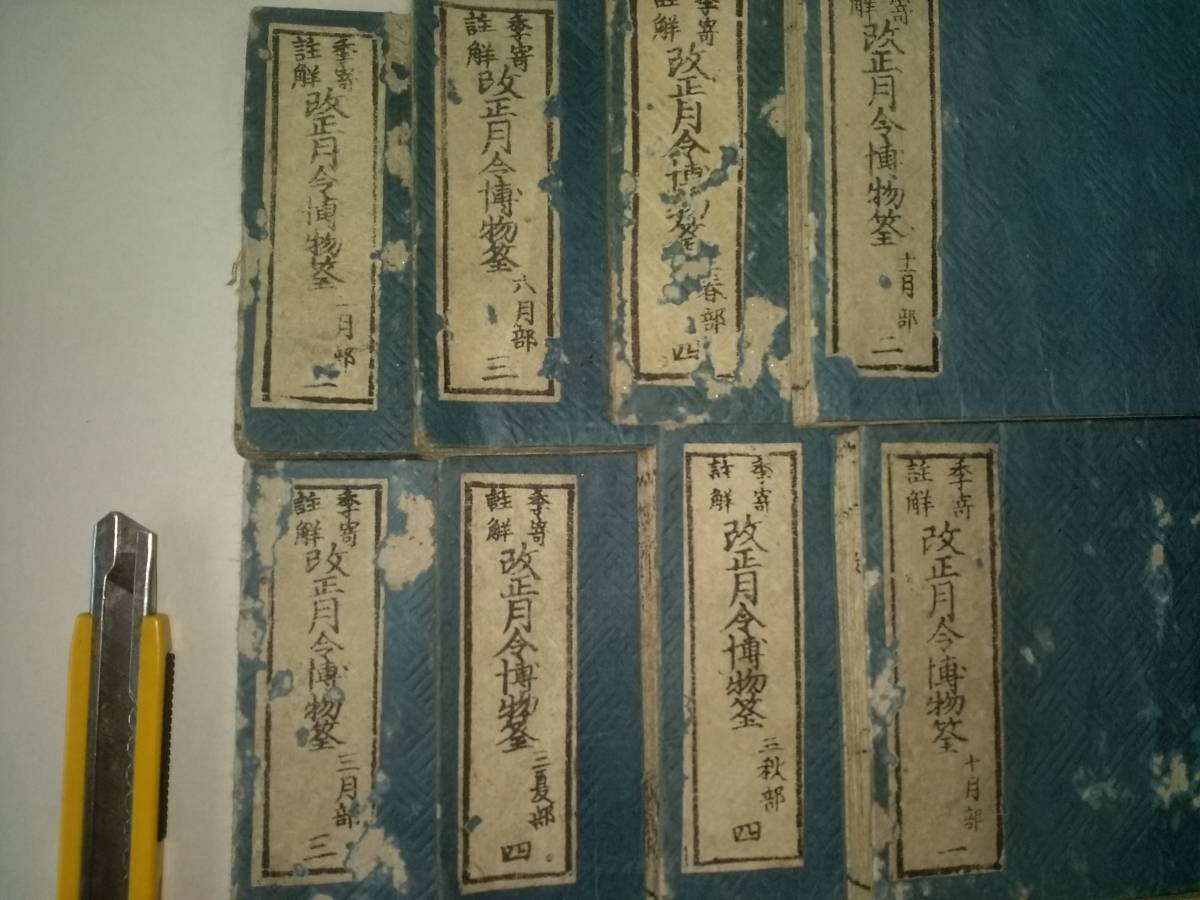 季寄
註解
改正月令博物筌
月部
一
季寄
註解
改正月令博物筌
六月部
三
季寄
註解
改正月令博物筌
春部
四
寄
解
改正月令博物筌
十一月部
二
季寄
註解
改正月令博物筌
三月部
三
季寄
註解
改正月令博物筌
三夏部
四
季寄
註解
改正月令博物筌
三秋部
四
季寄
註解
改正月令博物筌
十月部
一